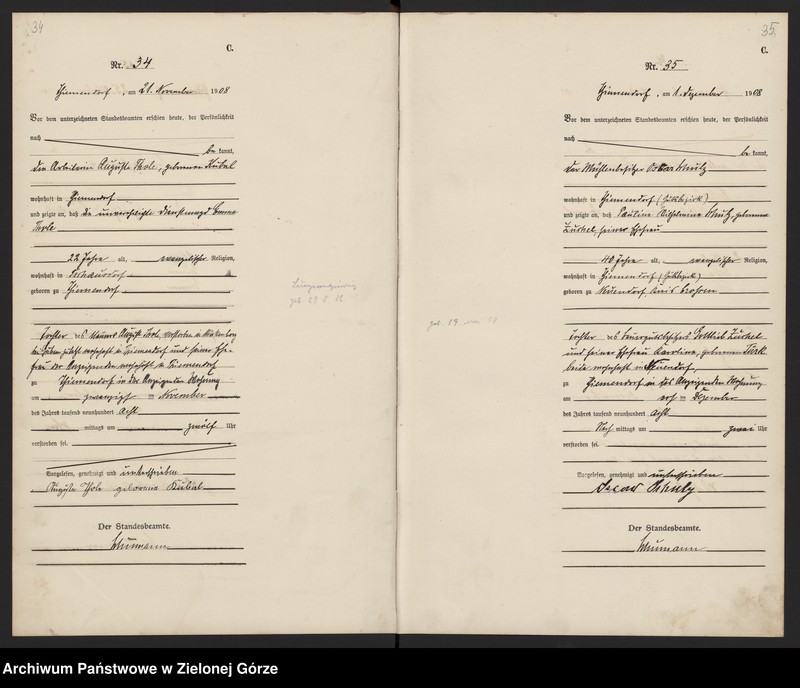 34
C.
Nr. 34
Thiemendorf, am 21. November 1908
Vor dem unterzeichneten Standesbeamten erschien heute, der Persönlichkeit
nach
be kannt,
die Arbeiterin Auguste Thole, geborene Kubal
wohnhaft in Thiemendorf
und zeigte an, daß die unverehelichte Dienstmagd Emma
Thole
22 Jahre alt, evangelischer Religion,
wohnhaft in
geboren zu Thiemendorf
Tochter des Thole, verstorben in
zuletzt wohnhaft in Thiemendorf und seiner Ehe-
frau der Anzeigenden wohnhaft in Thiemendorf
zu Thiemendorf in der Anzeigenden Wohnung
am zwanzigst en November
des Jahres tausend neunhundert acht
mittags um zwölf Uhr
verstorben sei.
Vorgelesen, genehmigt und unterschrieben
Auguste Thole geborene Kubal
Der Standesbeamte.
Schumann
35
C.
Nr. 35
Thiemendorf, am 1. Dezember 1908
Vor dem unterzeichneten Standesbeamten erschien heute, der Persönlichkeit
nach
be kannt,
der Mühlenbesitzer Oskar Schulz
wohnhaft in Thiemendorf
und zeigte an, daß Pauline Wilhelmine Schulz, geborene
seiner Ehefrau
40 Jahre alt, evangelischer Religion,
wohnhaft in Thiemendorf
geboren zu Neuendorf, Kreis Crossen
Tochter des Gottlieb
und seiner Ehefrau Karoline, geborenen
beide wohnhaft in Neuendorf,
zu Thiemendorf in des Anzeigenden Wohnung
am erst en Dezember
des Jahres tausend neunhundert acht
Nach mittags um zwei Uhr
verstorben sei.
Vorgelesen, genehmigt und unterschrieben
Oscar Schulz
Der Standesbeamte.
Schumann
Archiwum Państwowe w Zielonej Górze